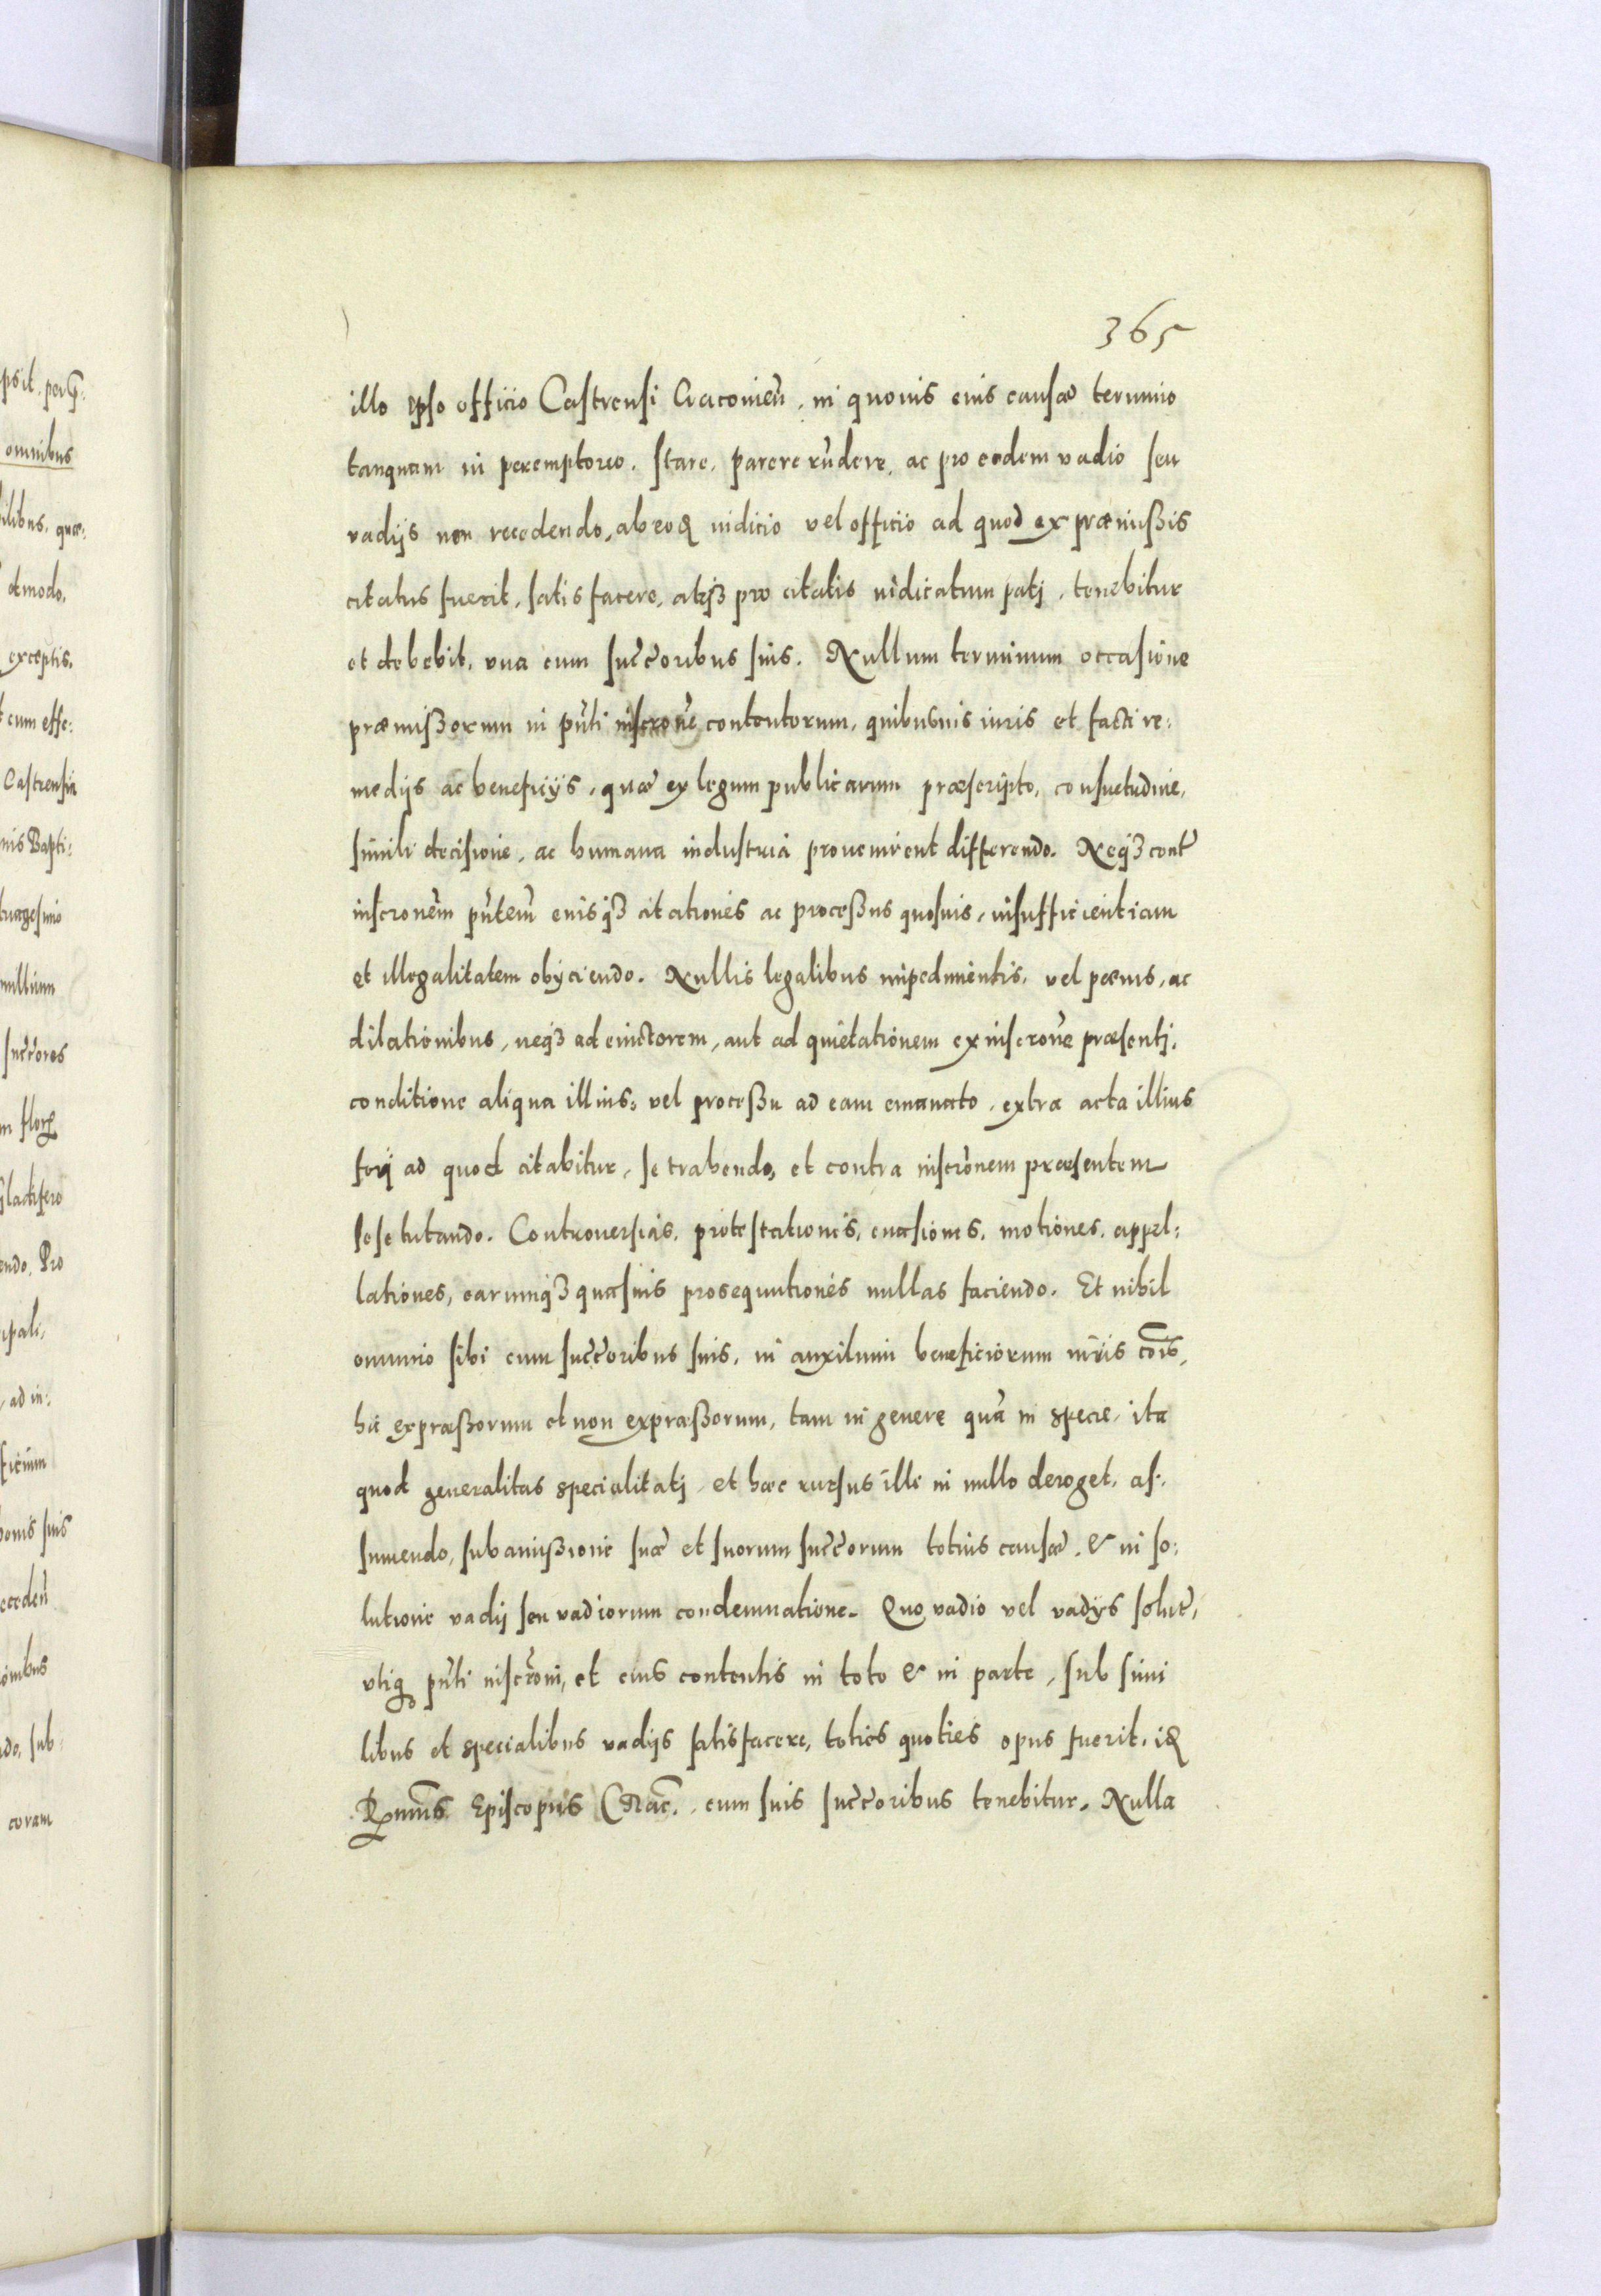 365
illo ipso officio Castrensi Cracovien̄, in quovis eius causæ termino
tanquam in peremptorio, stare, parere rñdere, ac pro eodem vadio seu
vadijs non recedendo, ab eoq iudicio vel officio ad quod ex præmißis
citatus fuerit, satisfacere, atqꝫ pro citatis iudicatum patj, tenebitur
et debebit, vna cum succ̄oribus suis. Nullum terminum occasione
præmißorum in pñti inscrone contentorum, quibusuis iuris et facti re:
medijs ac beneficijs, quæ ex legum publicarum præscripto, consuetudine,
simili decisione, ac humana industria provenirent differendo. Neqꝫ cont̄
inscronem pñtem eiusqꝫ citationes ac proceßus quosuis, insufficientiam
et illegalitatem obijciendo. Nullis legalibus impedimentis, vel pœnis, ac
dilationibus, neqꝫ ad euictorem, aut ad quietationem ex inscrone præsentj,
conditione aliqua illius, vel proceßu ad eam emanato, extra acta illius
forj ad quod citabitur, se trahendo, et contra inscronem præsentem
sese tutando. Controuersias, protestationes, euasiones, motiones, appel:
lationes, earumqꝫ quasuis prosequutiones nullas faciendo. Et nihil
omnino sibi cum succ̄oribus suis, in auxilium beneficiorum iuris cōis,
hic expræßorum et non expræßorum, tam in genere quā in specie, ita
quod generalitas specialitatj, et hæc rursus illi in nullo deroget, as:
sumendo, sub amißione suæ et suorum succ̄orum totius causæ, & in so:
lutione vadij seu vadiorum condemnatione. Quo vadio vel vadijs solut̄,
vtiqꝫ pñti inscroni, et eius contentis in toto & in parte, sub simi
libus et specialibus vadijs satisfacere, toties quoties opus fuerit, iꝫ
Rmus Episcopus Crac̄. cum suis succ̄oribus tenebitur. Nulla